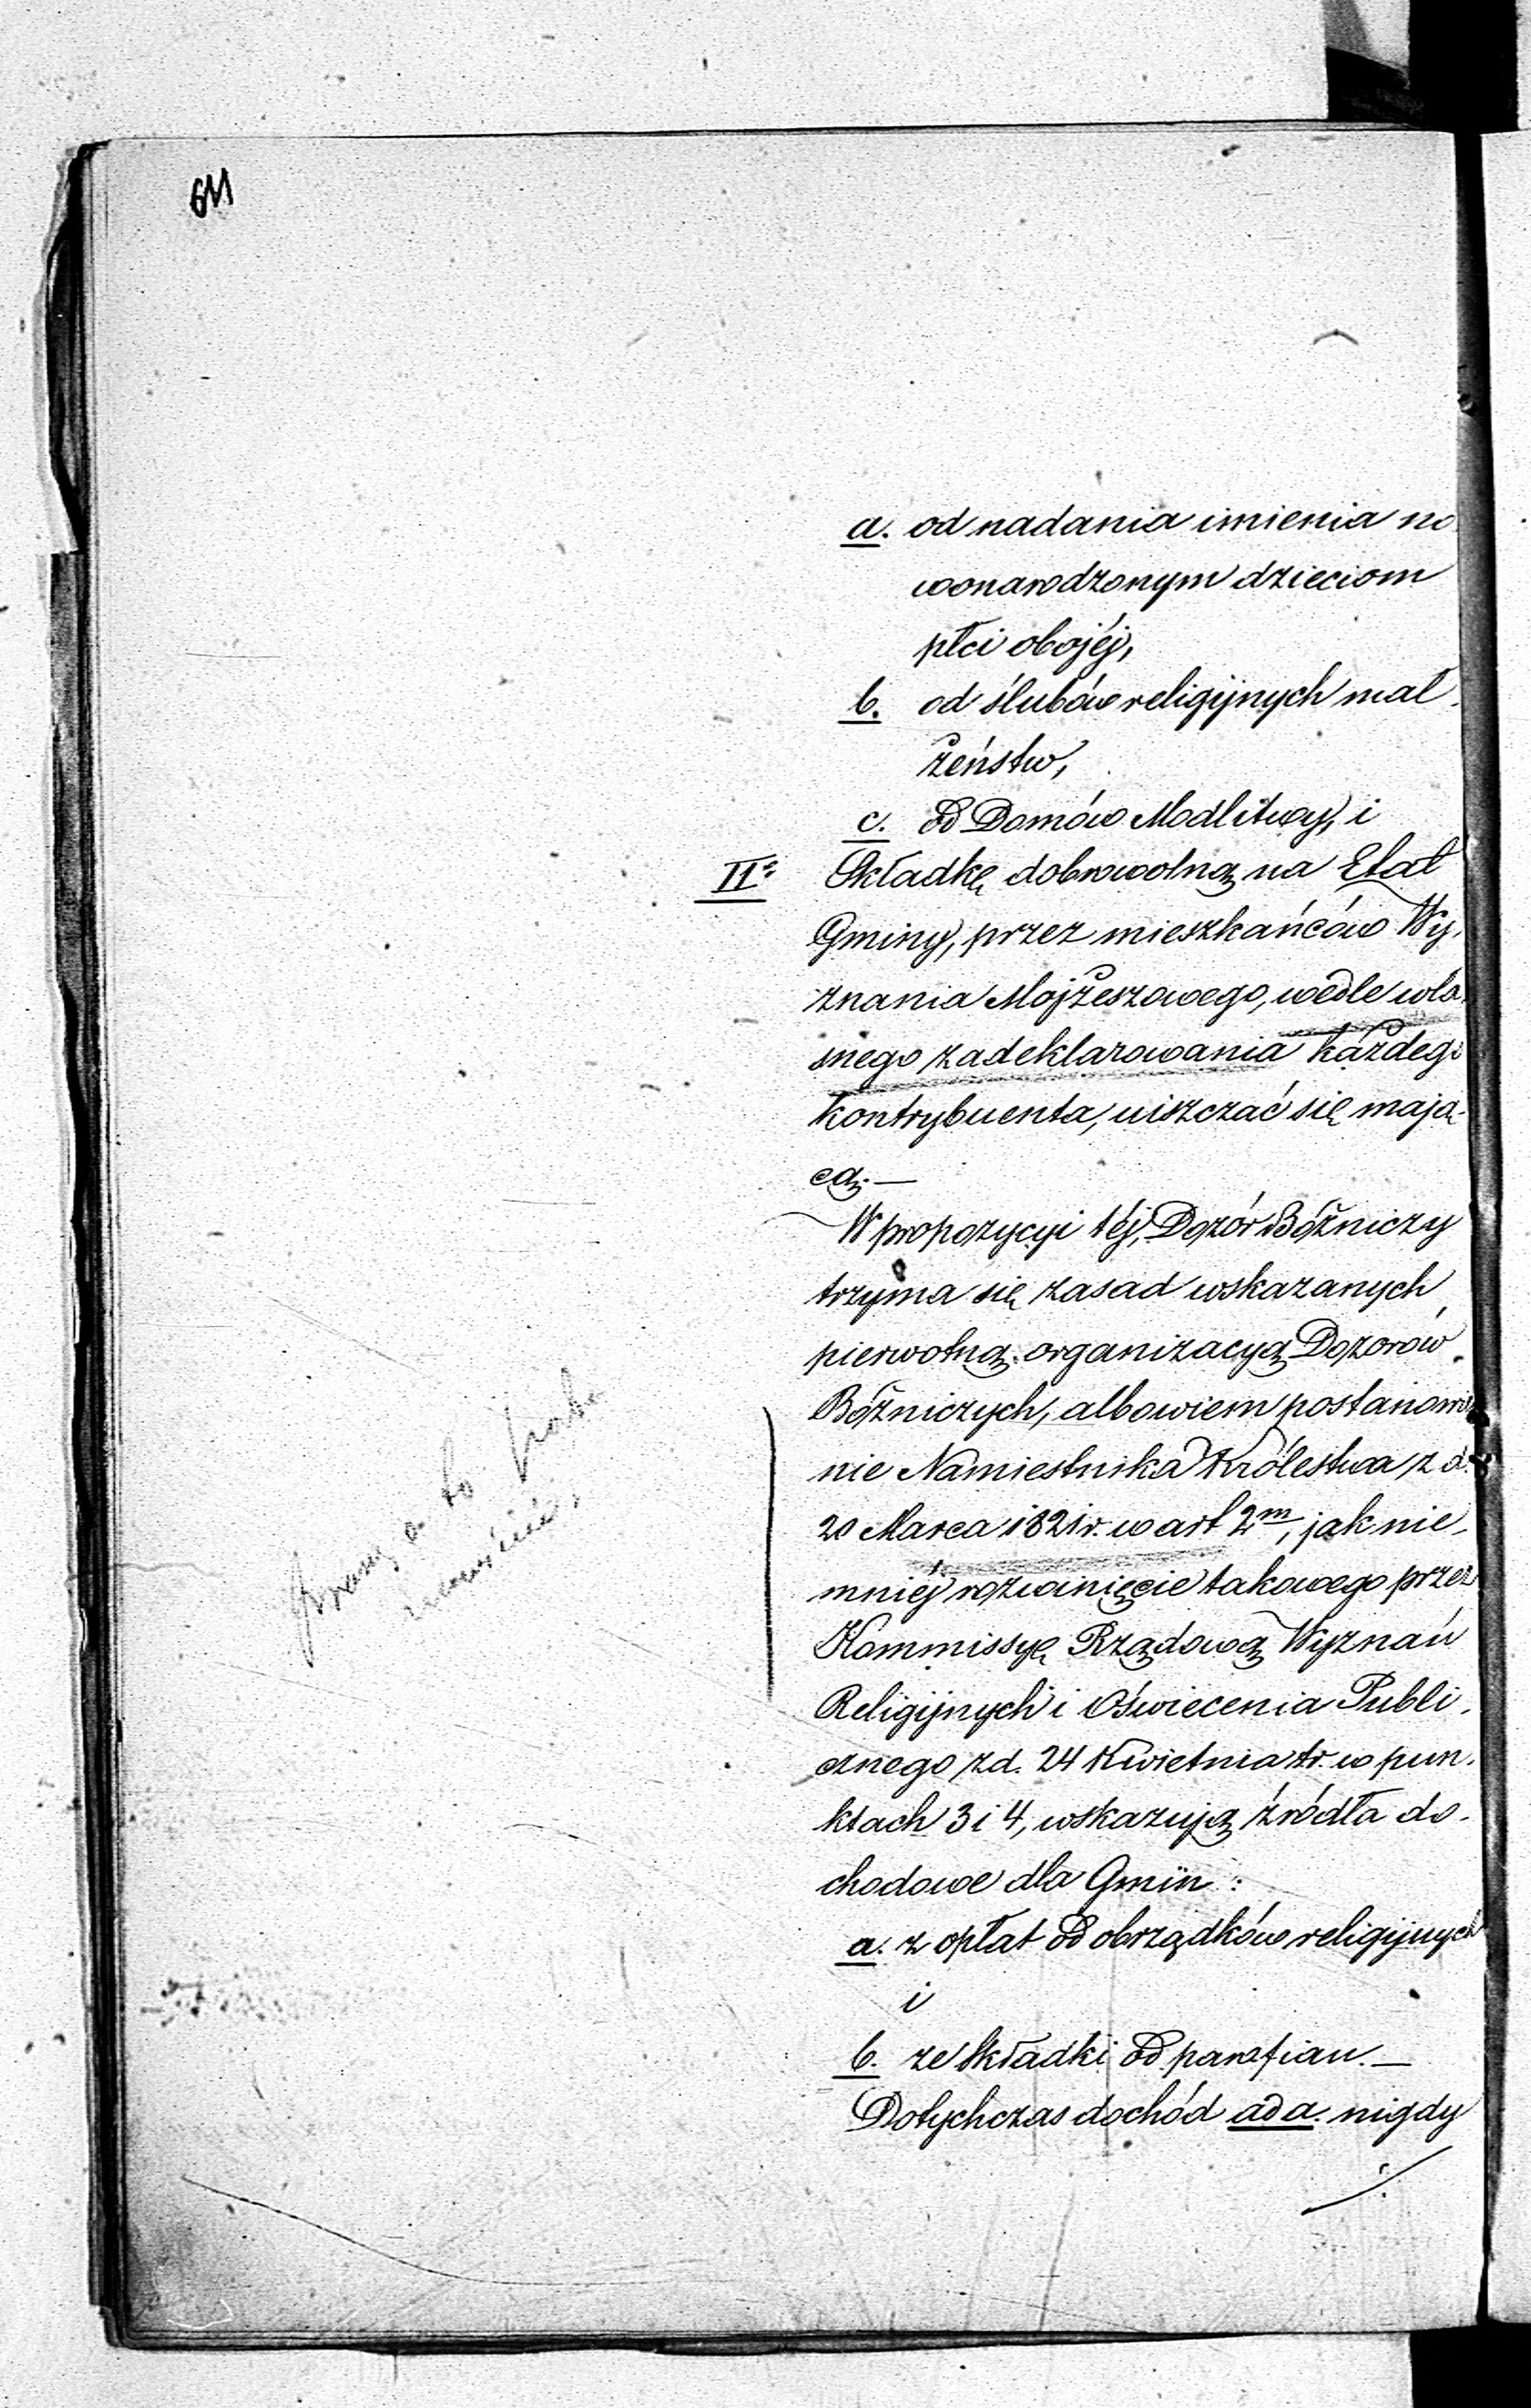 a. od nadania imienia no
wonarodzonym dzieciom
płci obojéj,
b. od ślubów religijnych mał-
żeństw,
c. od Domów Modlitwy, i
IIe Składkę dobrowolną na Etat
Gminy, przez mieszkańców Wy-
znania Mojżeszowego, wedle wła-
snego zadeklarowania każdego
kontrybuenta, uiszczać się mają-
cą.—
W propozycyi téj, Dozór Bóżniczy
trzyma się zasad wskazanych
pierwotną organizacyą Dozorów
Bóżniczych, albowiem postanowie
nie Namiestnika Królestwa z d.
20 Marca 1821 r. w art 2m, jak nie-
mniéj rozwinięcie takowego przez
Kommissyę Rządową Wyznań
Religijnych i Oświecenia Publi-
cznego z d. 24 Kwietnia t.r. w pun-
ktach 3 i 4, wskazują źródła do-
chodowe dla Gmin:
a. z opłat od obrządków religijnych
i
b. ze składki od parafian.—
Dotychczas dochód ad a. nigdy